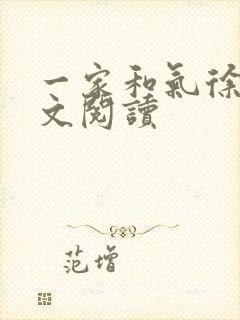 一家和氣徐
文閱讀
范增